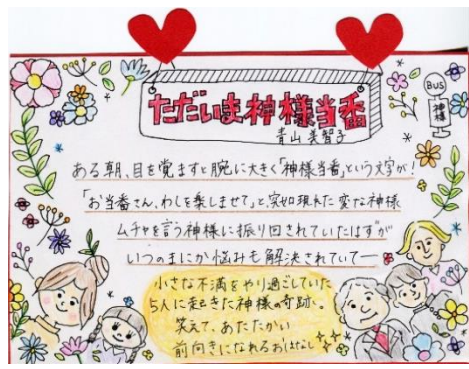 ただいま神様当番
青山美智子
BUS
神様
ある朝、目を覚ますと腕に大きく「神様当番」という文字が!
「お当番さん、わしを楽しませて」と突如現れた変な神様
ムチャを言う神様に振り回されていたはずが
いつのまにか悩みも解決されていて―
小さな不満をやり過ごしていた
5人に起きた神様の奇跡。
笑えて、あたたかい
前向きになれるおはなし